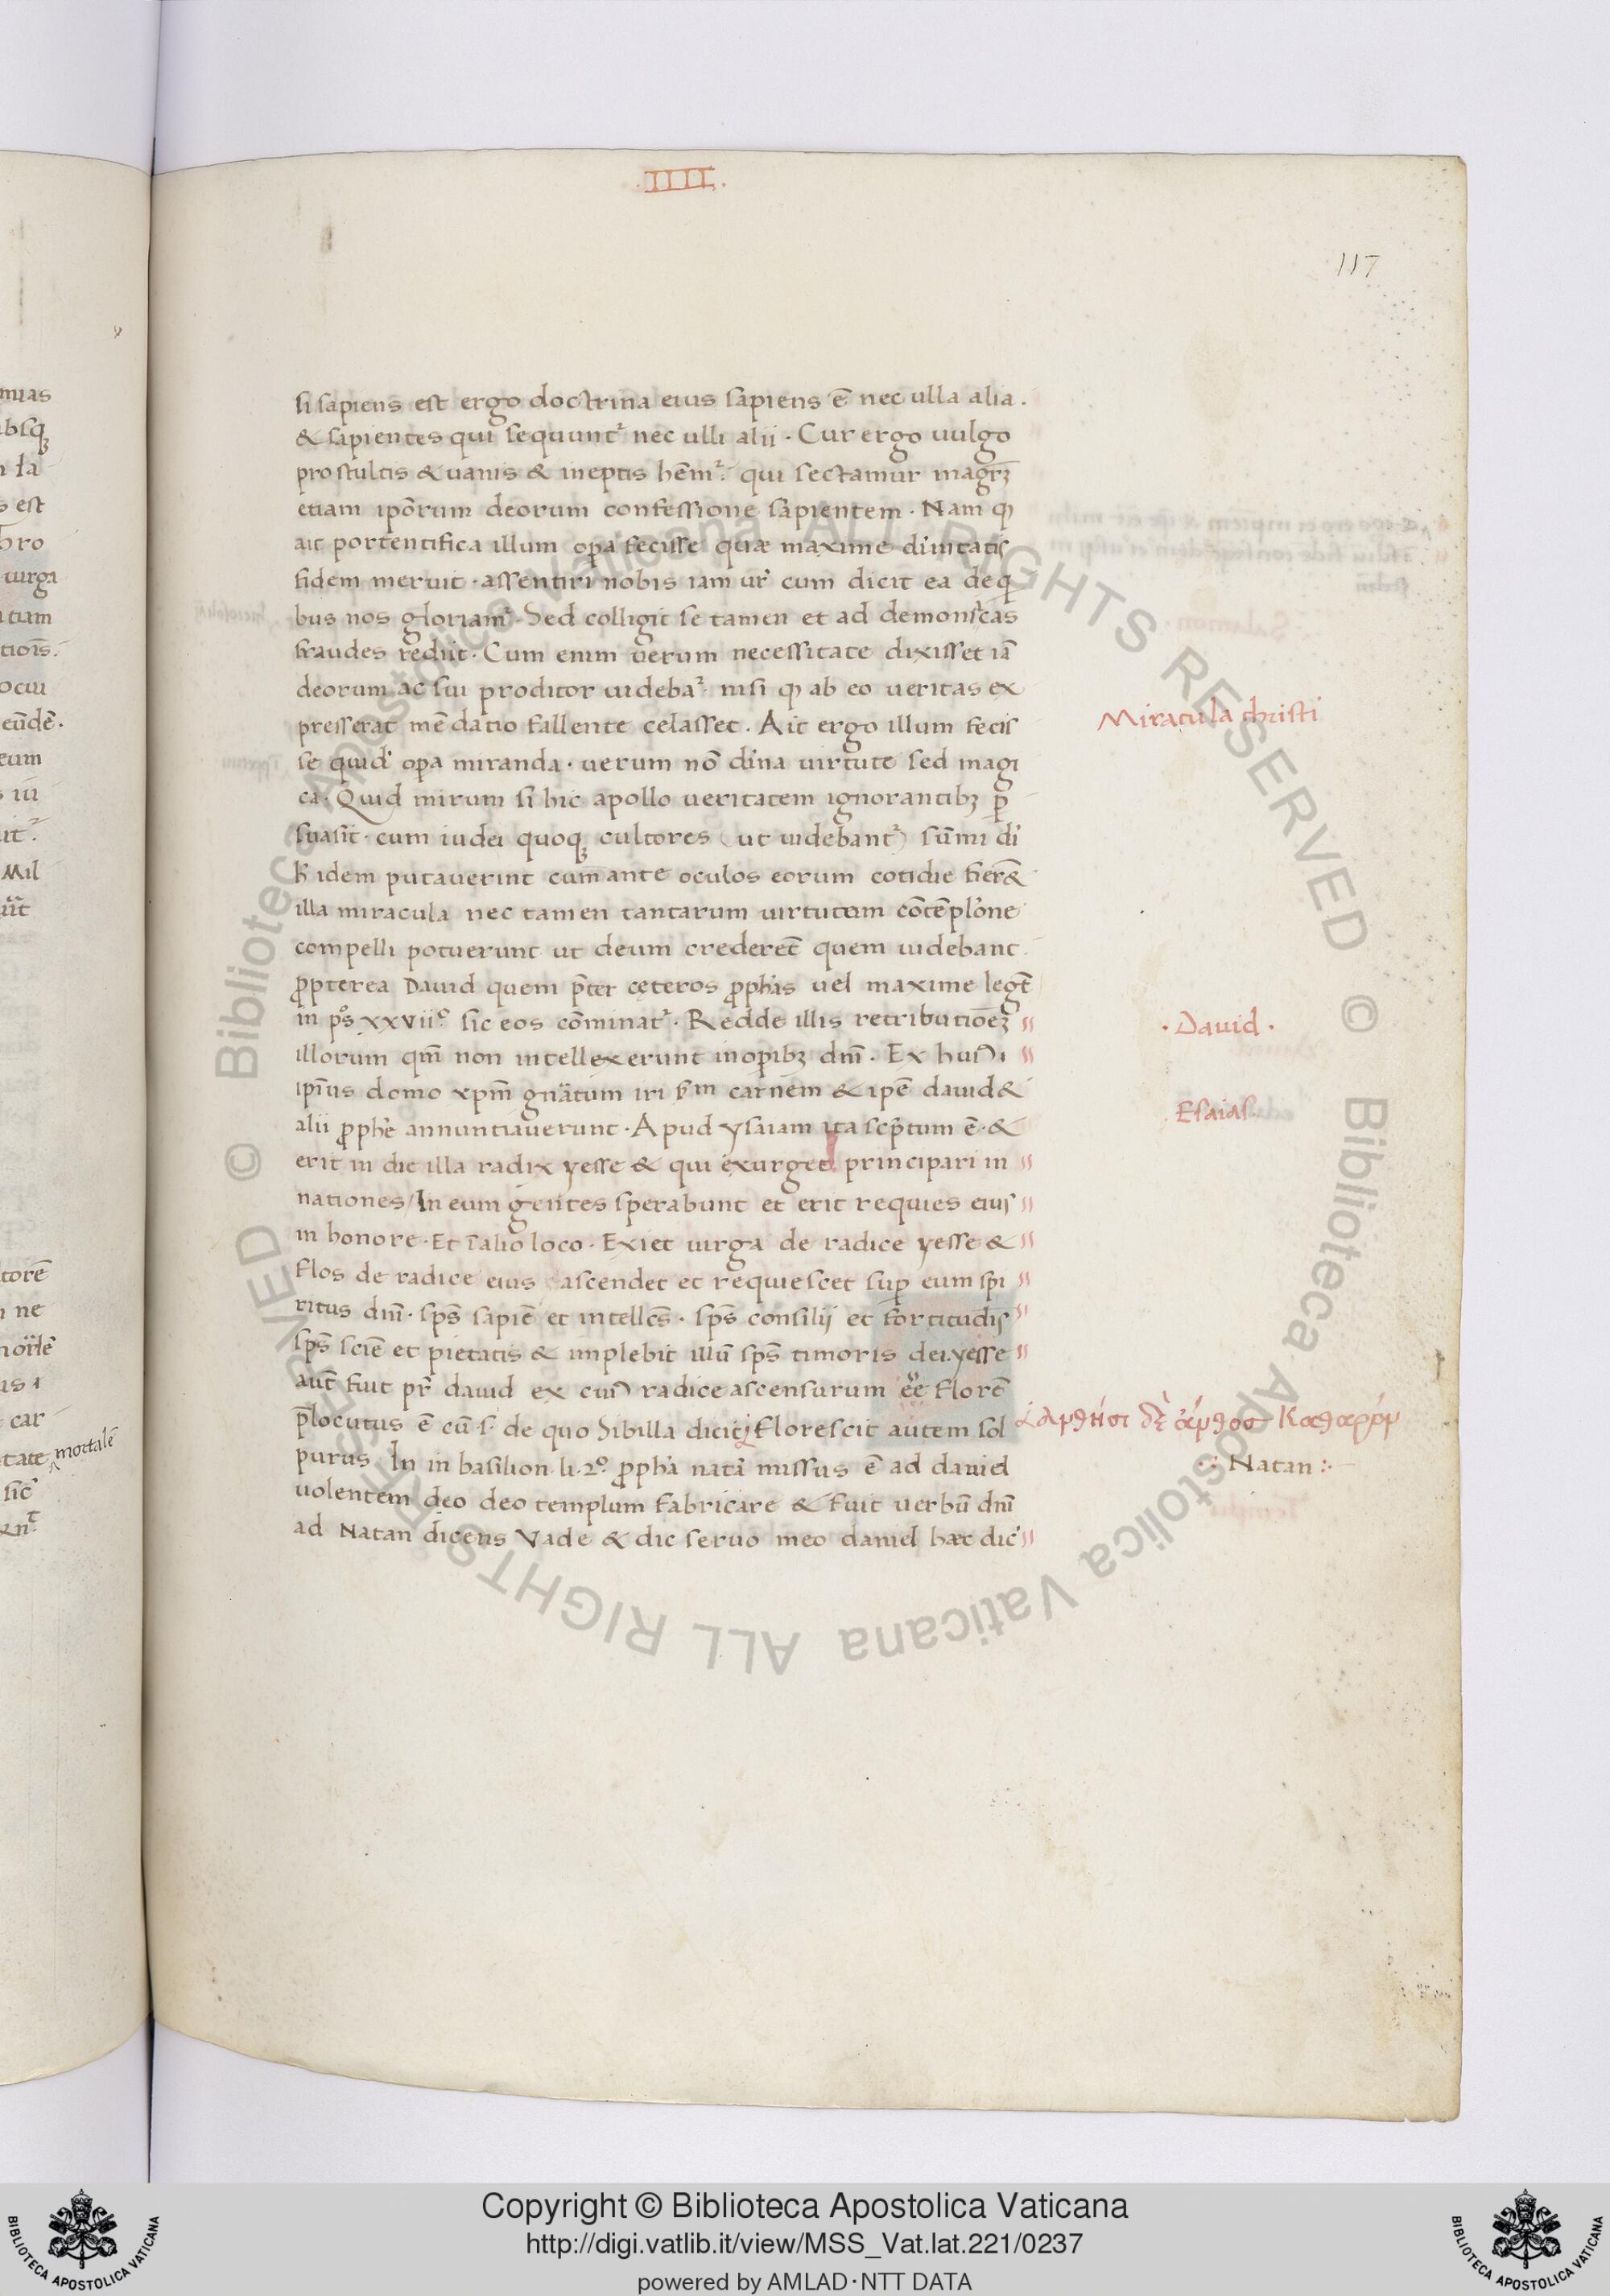 .IIII.
117
si sapiens est ergo doctrina eius sapiens ē nec ulla alia.
& sapientes qui sequunt᷑ nec ulli alii · Cur ergo uulgo
pro stultis & uanis & ineptis hēm᷑ qui sectamur magr̄ꝫ
etiam ipōrum deorum confessione sapientem · Nam ꝙ
ait portentifica illum oꝑa fecisse quæ maxime diuitatis
fidem meruit · assentiri nobis iam ur̄ cum dicit ea de q
bus nos gloriam᷑ · Sed colligit se tamen et ad demonicas
fraudes rediit · Cum enim uerum necessitate dixisset iā
deorum ac sui proditor uideba᷑ nisi ꝙ ab eo ueritas ex
presserat mēdatio fallente celasset . Ait ergo illum fecis
se quid' oꝑa miranda · uerum nō diīna uirtute sed magi
ca · Quid mirum si hic apollo ueritatem ignorantibꝫ ꝑ
suasit · cum iudei quoqꝫ cultores (ut uidebant᷑) sūmi di
h idem putauerint cum ante oculos eorum cotidie fier&
illa miracula nec tamen tantarum uirtutem cōtēplōne
compelli potuerunt ut deum crederēt quem uidebant
ꝓpterea Dauid quem p̄ter cęteros ꝓph'as uel maxime legt̄
in ps̄ xxvii° sic eos cōminat᷑ · Redde illis retributioēꝫ
illorum qm̄ non intellexerunt in oꝑibꝫ dnī · Ex hui᷒ i
ipīus domo xpm̄ gnātum iri s̄m carnem & ipē dauid &
alii ꝓphē annuntiauerunt · Apud ysaiam ita scp̄tum ē · &
erit in die illa radix yesse & qui exurget principari in
nationes / In eum gentes sperabunt et erit requies eius
in honore · Et ī alio loco · Exiet uirga de radice yesse &
flos de radice eius ascendet et requiescet suꝑ eum spi
ritus dnī · sps̄ sapiē et intellcs̄ · sps̄ consilij et fortitudis
sps̄ sciē et pietatis & implebit illū sps̄ timoris dei. yesse
aut̄ fuit pr̄ dauid ex cui᷒ radice ascensurum ēe florē
p̄locutus ē cū · s · de quo Sibilla dicit Florescit autem sol
purus In in basilion · li · 2° ꝓpha natā missus ē ad dauid
uolentem deo deo templum fabricare & fuit uerbū dnī
ad Natan dicens Vade & dic seruo meo daniel hæc dic'
Miracula christi
· Dauid ·
Esaias ·
ἀνθήσει δ' ἄνθος καθαρόν
.: Natan :.
mortalē
Copyright © Biblioteca Apostolica Vaticana
http://digi.vatlib.it/view/MSS_Vat.lat.221/0237
powered by AMLAD·NTT DATA
BIBLIOTECA APOSTOLICA VATICANA
BIBLIOTECA APOSTOLICA VATICANA
© Biblioteca Apostolica Vaticana ALL RIGHTS RESERVED © Biblioteca Apostolica Vaticana ALL RIGHTS RESERVED